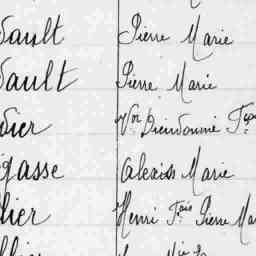 sault Pierre Marie
sault Pierre Marie
dier Vor Dieudonné
gasse Alexis Marie
lier Henri Fçois Pierre Ma